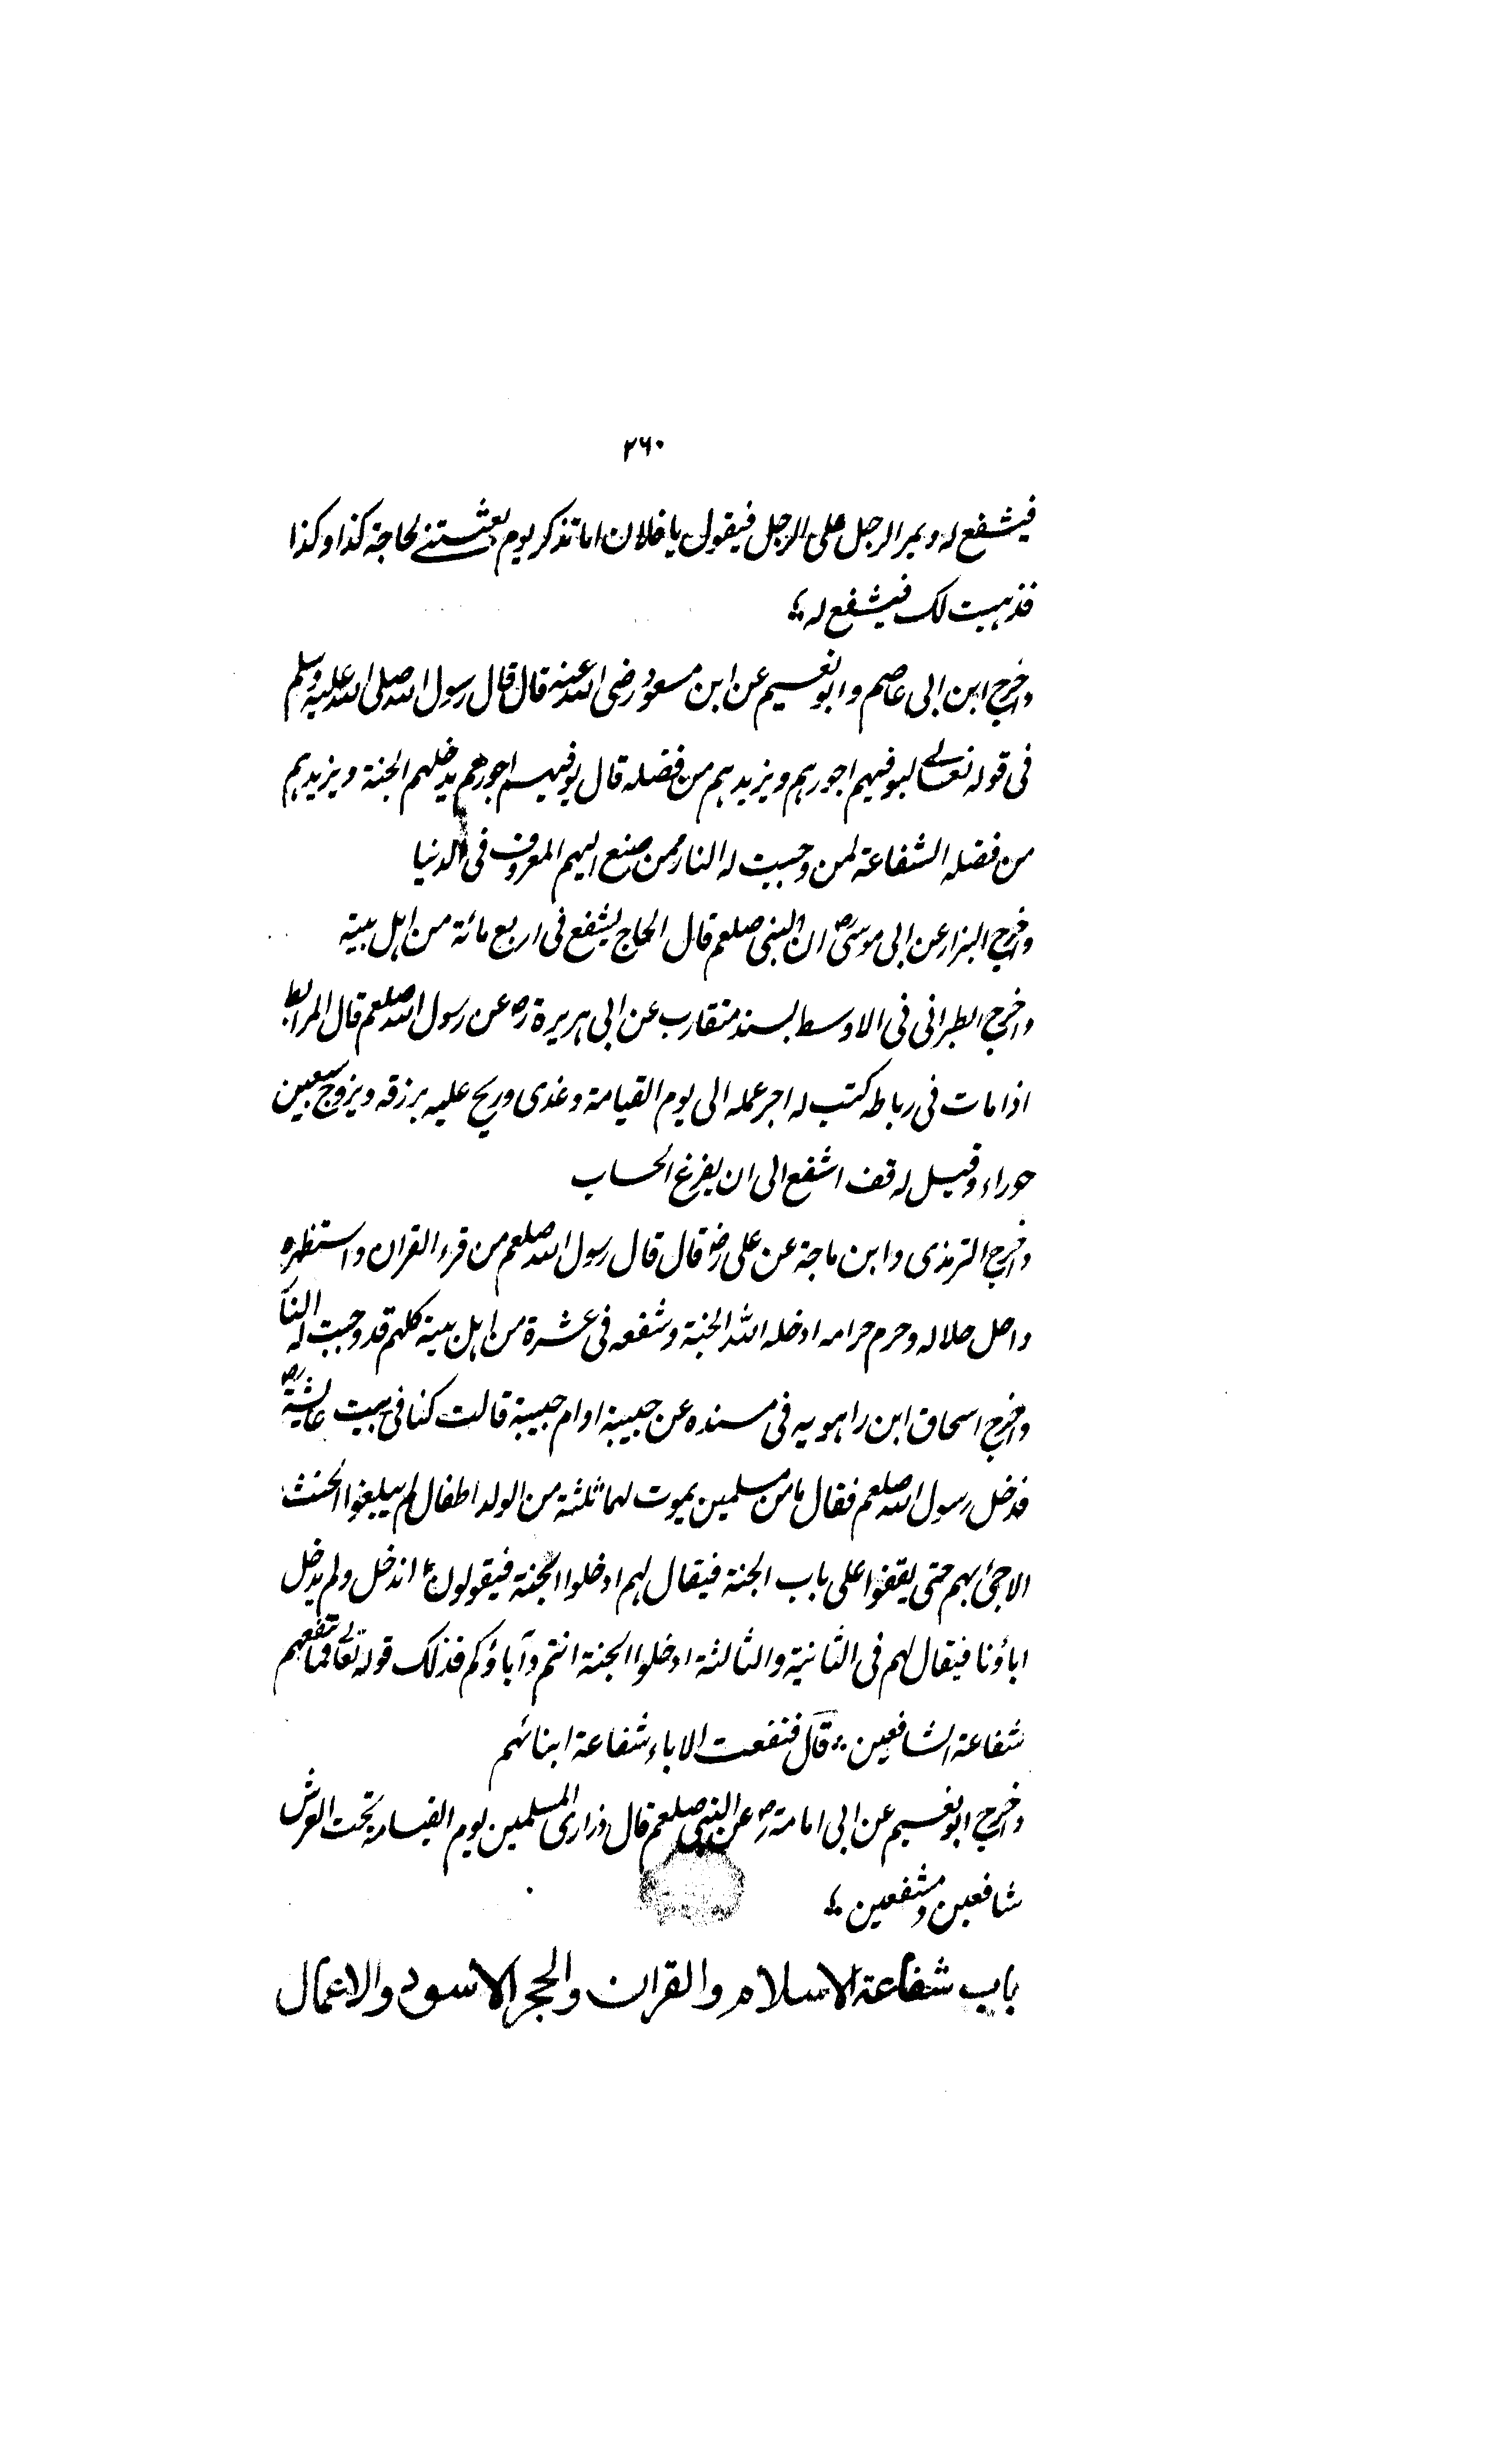 ٢٦٠
فيشفع له ويمر الرجل على الرجل فيقول يا فلان اما تذكر يوم بعثتني لحاجة كذا وكذا
فذهبت لك فيشفع له
واخرج ابن ابى عاصم وابو نعيم عن ابن مسعود رضى الله عنه قال قال رسول الله صلى الله عليه وسلم
فى قوله تعالے ليوفيهم اجورهم ويزيدهم من فضله قال يوفيهم اجورهم يدخلهم الجنة ويزيدهم
من فضله الشفاعة لمن وجبت له النار ممن صنع اليهم المعروف فى الدنيا
واخرج البزار عن ابى موسى رض ان النبى صلعم قال الحاج يشفع فى اربع مائة من اهل بيته
واخرج الطبرانى فى الاوسط بسند متقارب عن ابى هريرة رض عن رسول الله صلعم قال المرابط
اذا مات فى رباطه كتب له اجر عمله الى يوم القيامة وغدى وريح عليه برزقه ويزوج سبعين
حوراء وقيل له قف اشفع الى ان يفرغ الحساب
واخرج الترمذى وابن ماجة عن على رض قال قال رسول الله صلعم من قرء القران واستظهره
واحل حلاله وحرم حرامه ادخله الله الجنة وشفعه فى عشرة من اهل بيته كلهم قد وجبت له النار
واخرج اسحاق ابن راهويه فى مسنده عن حبيبة او ام حبيبة قالت كنا فى بيت عائشة رض
فدخل رسول الله صلعم فقال ما من مسلمين يموت لهما ثلثة من الولد اطفال لم يبلغوا الحنث
الا جئ بهم حتى يقفوا على باب الجنة فيقال لهم ادخلوا الجنة فيقولون اندخل ولم يدخل
اباؤنا فيقال لهم فى الثانية والثالثة ادخلوا الجنة انتم وآباؤكم فذلك قوله تعالى فما تنفعهم
شفاعة الشافعين قال فنفعت الاباء شفاعة ابنائهم
واخرج ابو نعيم عن ابى امامة رض عن النبى صلعم قال ذرارى المسلمين يوم القيامة تحت العرش
شافعين ومشفعين
باب شفاعة الاسلام والقران والحجر الاسود والاعمال